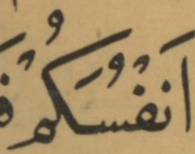 انفسكم